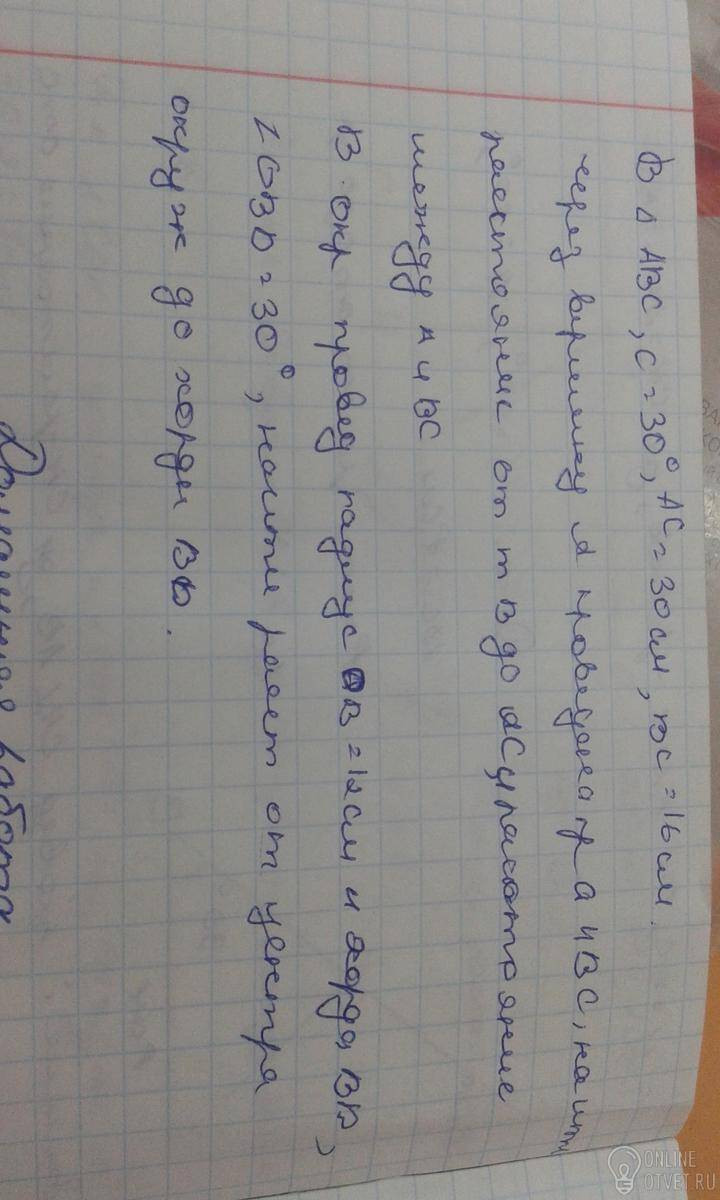 В Δ ABC, C = 30°, AC = 30 см, BC = 16 см.
через вершину A проведена пр a ıı BC, найти
расстояние от т B до AC, расстояние
между a ıı BC
В окр провед радиус OB = 12 см и хорда BD,
∠OBD = 30°, найти расст от центра
окруж до хорды BD.
Домашняя работа
ONLINE
OTVET.RU